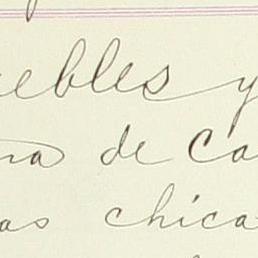 uebles y
na de ca
as chica